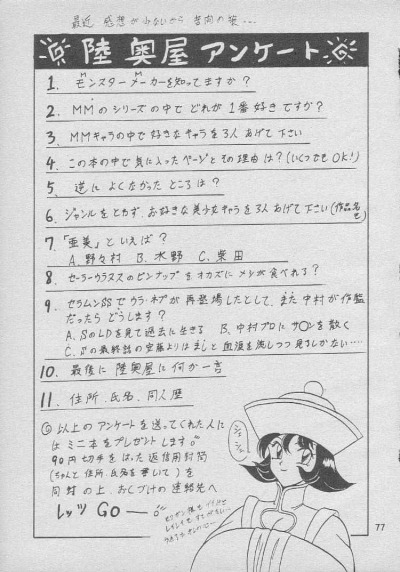 最近 感想が少ないから 苦肉の策...
陸奥屋アンケート
1. モンスターメーカーを知ってますか?
2. MMのシリーズの中で どれが 1番好きですか?
3. MMキャラの中で 好きなキャラを 3人 あげて下さい
4. この本の中で気に入ったページと その理由は?(いくつでもOK!)
5. 逆に よくなかった ところは?
6. ジャンルをとわず、お好きな美少女キャラを3人あげて下さい(作品名も)
7. 「亜美」といえば?
A. 野々村 B. 水野 C. 柴田
8. セーラーウラヌスのピンナップを オカズに メシが食べれる?
9. セラムンSSで ウラ・ネプが 再登場したとして、また 中村が作監
だったら どうします?
A. SのLDを見て過去に生きる B. 中村プロに サ〇ンを散く
C. Sの最終話の安藤よりは ましと 血涙を流しつつ 見るしかない……
10. 最後に 陸奥屋に 何か一言
11. 住所、氏名、同人歴
◎以上の アンケートを 送ってくれた人に
は ミニ本を プレゼント します
90円切手を はった 返信用封筒
(ちゃんと 住所、氏名を 書いて) を
同封の上 、おくづけの 連絡先へ
レッツ GO ―
シェイシェイ
77